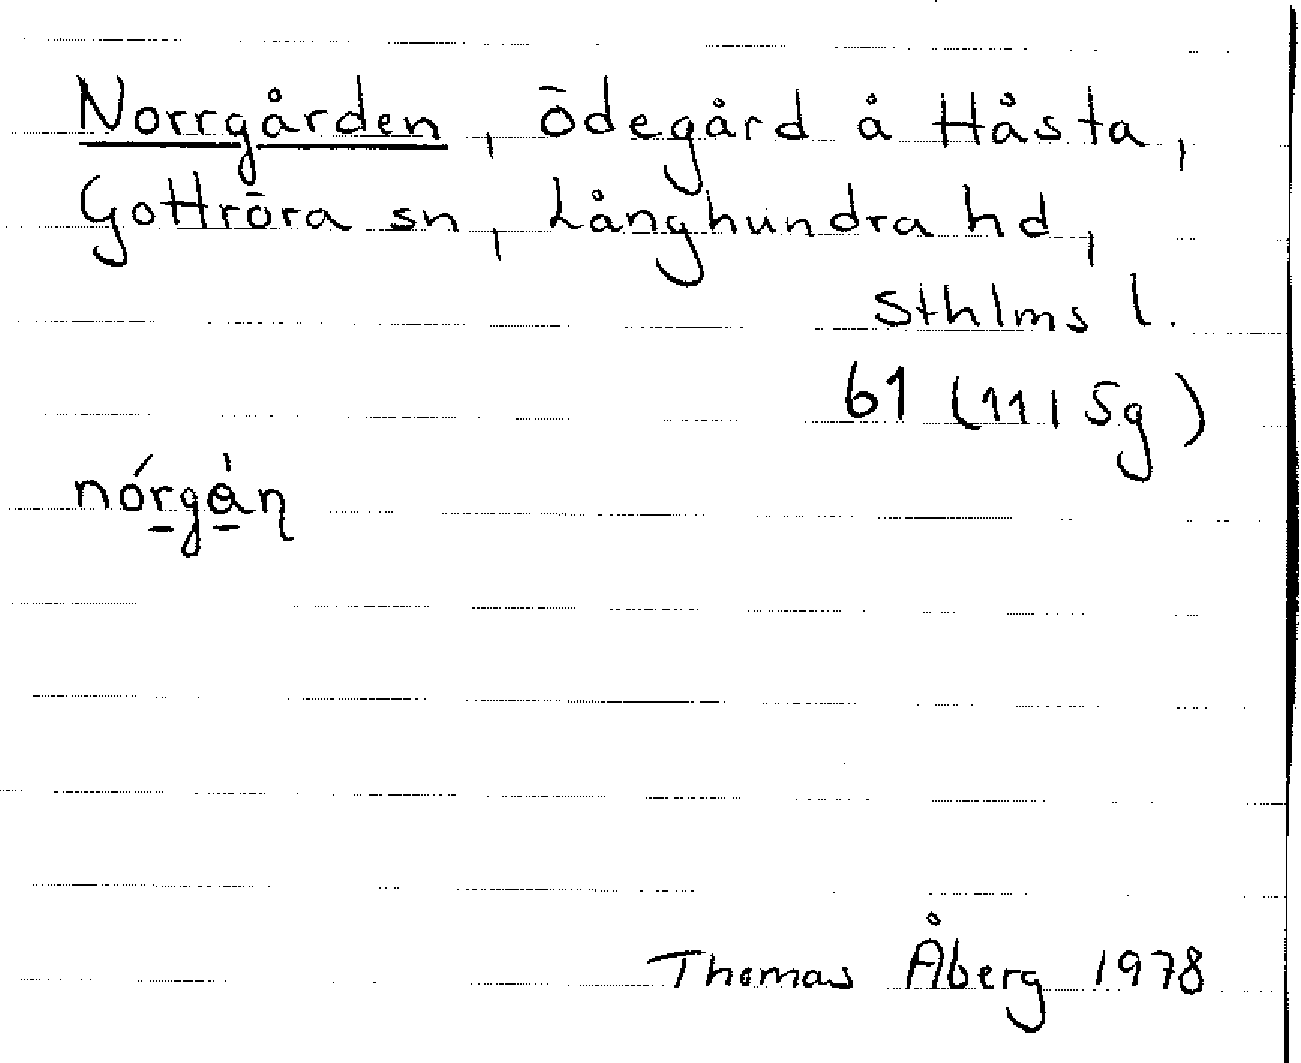 Norrgården, ödegård å Håsta,
Gottröra sn, Långhundra hd,
Sthlms l.
61 (11I5g)
nórgàn
Thomas Åberg 1978